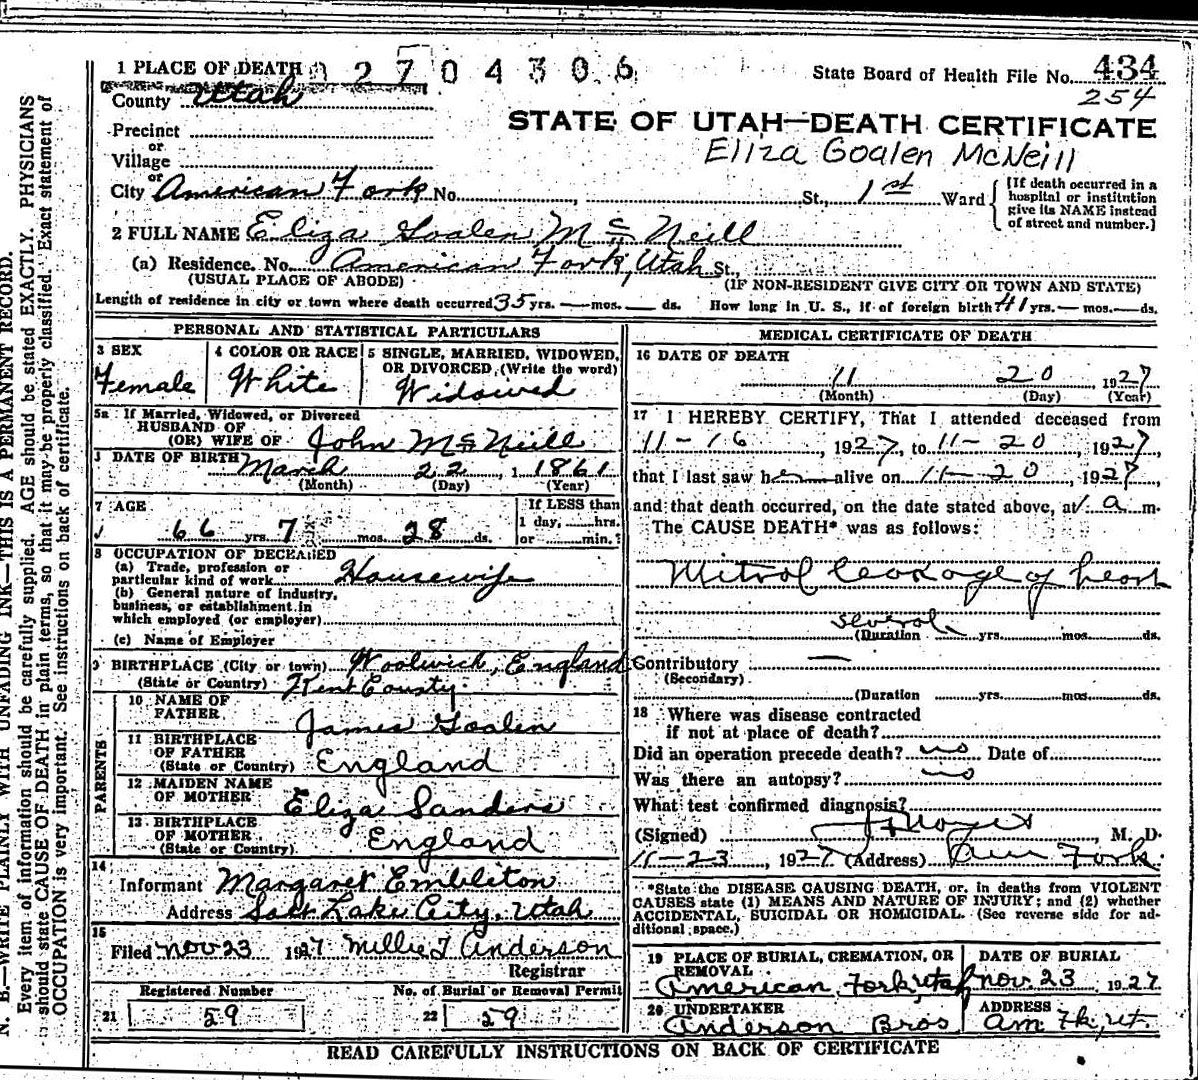 1 PLACE OF DEATH
2704306
State Board of Health File No. 434
254
County Utah
STATE OF UTAH—DEATH CERTIFICATE
Precinct
or
Village
Eliza Goalen McNeill
or
City American Fork No. , St., 1st Ward
[If death occurred in a
hospital or institution
give its NAME instead
of street and number.]
2 FULL NAME Eliza Goalen McNeill
(a) Residence. No. American Fork, Utah St.,
(USUAL PLACE OF ABODE) (IF NON-RESIDENT GIVE CITY OR TOWN AND STATE)
Length of residence in city or town where death occurred 35 yrs. — mos. ds. How long in U. S., if of foreign birth 41 yrs. — mos. — ds.
PERSONAL AND STATISTICAL PARTICULARS
3 SEX
Female
4 COLOR OR RACE
White
5 SINGLE, MARRIED, WIDOWED,
OR DIVORCED, (Write the word)
Widowed
5a If Married, Widowed, or Divorced
HUSBAND OF
(OR) WIFE OF John McNeill
DATE OF BIRTH March 22 1861
(Month) (Day) (Year)
7 AGE
66 yrs. 7 mos. 28 ds.
If LESS than
1 day, hrs.
or min.?
8 OCCUPATION OF DECEASED
(a) Trade, profession or
particular kind of work Housewife
(b) General nature of industry,
business, or establishment in
which employed (or employer)
(c) Name of Employer
9 BIRTHPLACE (City or town) Woolwich, England
(State or Country) Kent County
PARENTS
10 NAME OF
FATHER James Goalen
11 BIRTHPLACE
OF FATHER
(State or Country) England
12 MAIDEN NAME
OF MOTHER Eliza Sanders
13 BIRTHPLACE
OF MOTHER
(State or Country) England
14
Informant Margaret Embleton
Address Salt Lake City, Utah
15
Filed Nov 23 1927 Millie T Anderson
Registrar
Registered Number
21 59
No. of Burial or Removal Permit
22 59
MEDICAL CERTIFICATE OF DEATH
16 DATE OF DEATH
11 20 1927
(Month) (Day) (Year)
17 I HEREBY CERTIFY, That I attended deceased from
11-16, 1927, to 11-20, 1927
that I last saw her alive on 11-20, 1927,
and that death occurred, on the date stated above, at 1 a m.
The CAUSE DEATH* was as follows:
Mitral leakage of heart
several
(Duration yrs. mos. ds.
Contributory —
(Secondary)
(Duration yrs. mos. ds.
18 Where was disease contracted
if not at place of death?
Did an operation precede death? no Date of
Was there an autopsy? no
What test confirmed diagnosis?
(Signed) , M. D.
11-23, 1927 (Address) Am Fork
*State the DISEASE CAUSING DEATH, or, in deaths from VIOLENT
CAUSES state (1) MEANS AND NATURE OF INJURY; and (2) whether
ACCIDENTAL, SUICIDAL OR HOMICIDAL. (See reverse side for ad-
ditional space.)
19 PLACE OF BURIAL, CREMATION, OR
REMOVAL
American Fork, Utah
DATE OF BURIAL
Nov 23 1927
20 UNDERTAKER
Anderson Bros
ADDRESS
Am. Fk, Ut.
READ CAREFULLY INSTRUCTIONS ON BACK OF CERTIFICATE
N. B.—WRITE PLAINLY WITH UNFADING INK—THIS IS A PERMANENT RECORD.
Every item of information should be carefully supplied. AGE should be stated EXACTLY. PHYSICIANS
should state CAUSE OF DEATH in plain terms, so that it may be properly classified. Exact statement of
OCCUPATION is very important. See instructions on back of certificate.